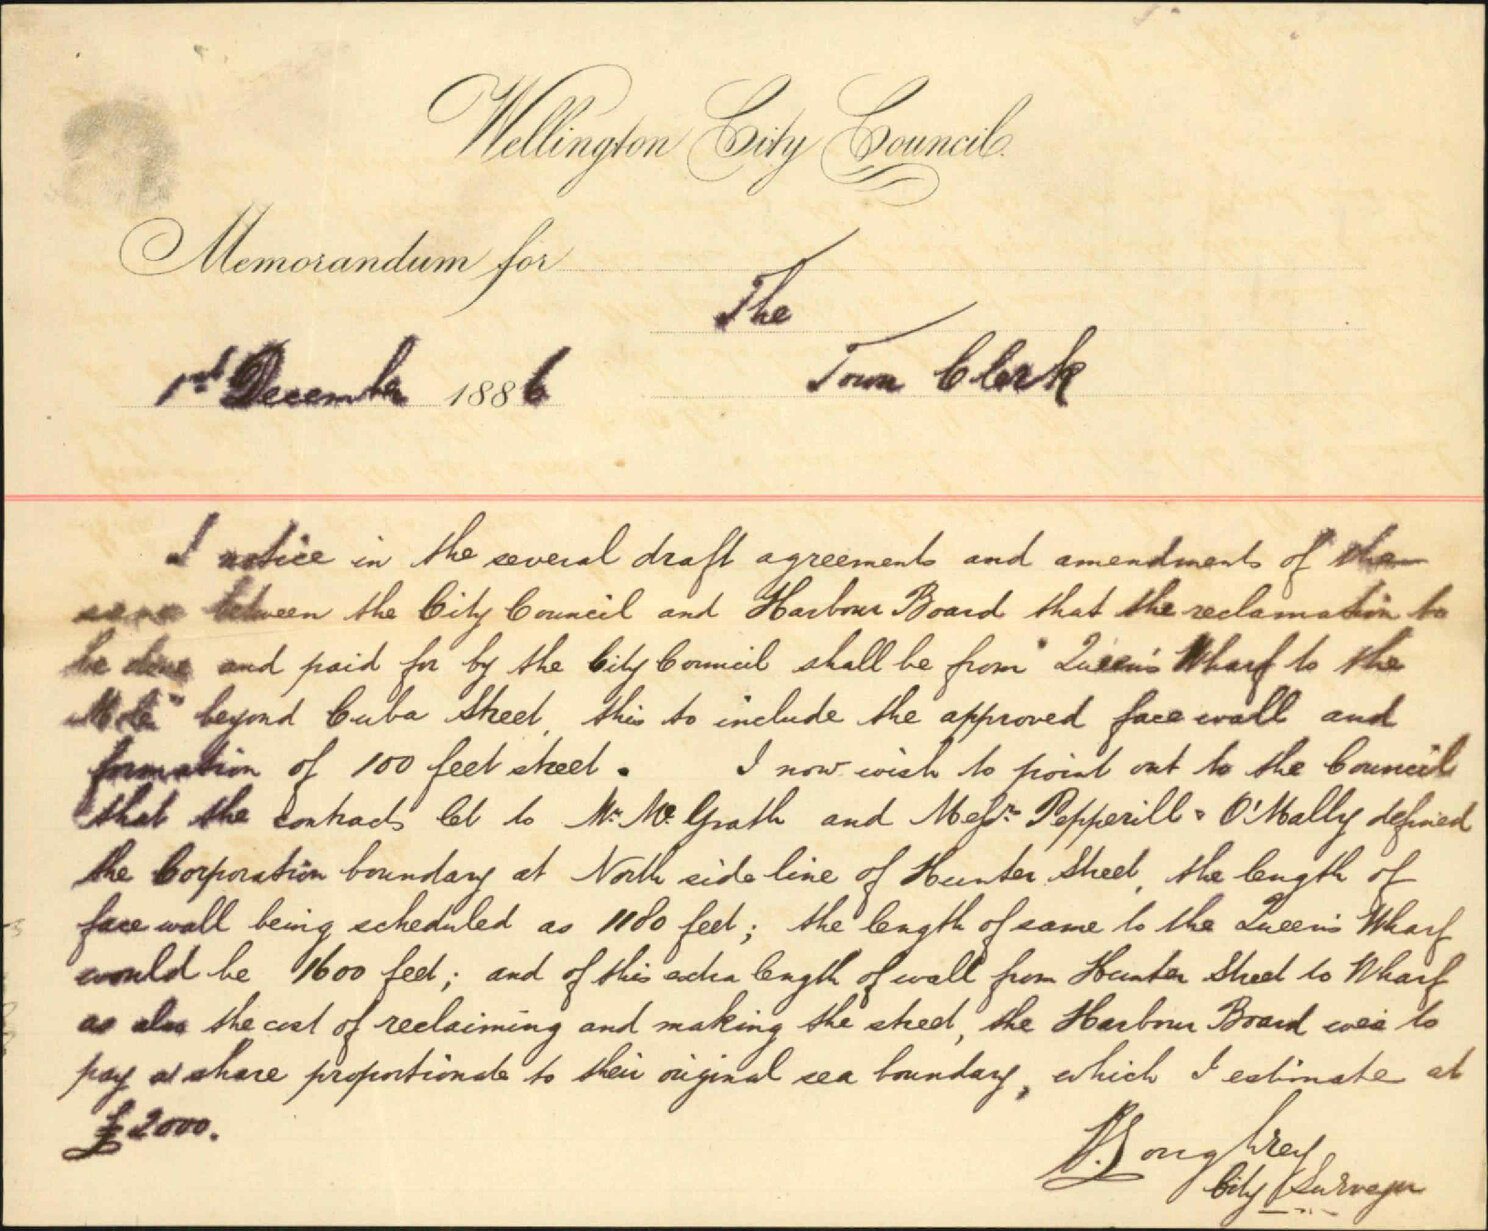 Wellington City Council.
Memorandum for
The
1st December 1886
Town Clerk
I notice in the several draft agreements and amendments of the
same between the City Council and Harbour Board that the reclamation to
be done and paid for by the City Council shall be from "Queen's Wharf to the
beyond Cuba Street, this to include the approved face wall and
formation of 100 feet street. I now wish to point out to the Council
that the contracts let to Mr. McGrath and Messrs Pepperill & O'Mally defined
the Corporation boundary at North side line of Hunter Street, the length of
face wall being scheduled as 1180 feet; the length of same to the Queen's Wharf
would be 1600 feet; and of this extra length of wall from Hunter Street to Wharf
as also the cost of reclaiming and making the street, the Harbour Board were to
pay a share proportionate to their original sea boundary, which I estimate at
£2000.
Loughrey
City Surveyor